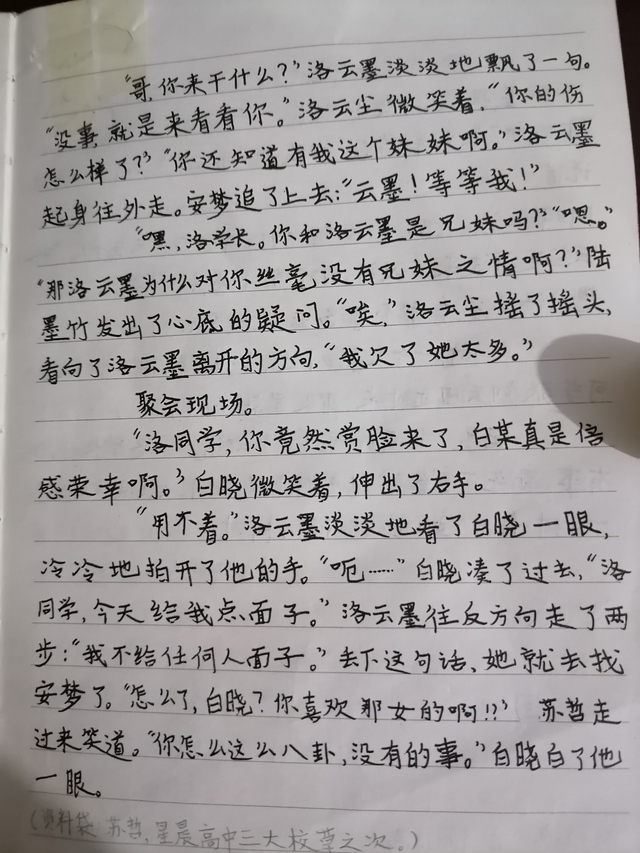 “哥,你来干什么?”洛云墨淡淡地飘了一句。
“没事,就是来看看你。”洛云尘微笑着,“你的伤
怎么样了?”“你还知道有我这个妹妹啊。”洛云墨
起身往外走。安梦追了上去:“云墨!等等我!”
“嘿,洛学长。你和洛云墨是兄妹吗?”“嗯。”
“那洛云墨为什么对你丝毫没有兄妹之情啊?”陆
墨竹发出了心底的疑问。“唉,”洛云尘摇了摇头,
看向了洛云墨离开的方向,“我欠了她太多。”
聚会现场。
“洛同学,你竟然赏脸来了,白某真是倍
感荣幸啊。”白晓微笑着,伸出了右手。
“用不着。”洛云墨淡淡地看了白晓一眼,
冷冷地拍开了他的手。“呃……”白晓凑了过去,“洛
同学,今天给我点面子。”洛云墨往反方向走了两
步:“我不给任何人面子。”丢下这句话,她就去找
安梦了。“怎么了,白晓?你喜欢那女的啊!?”苏哲走
过来笑道。“你怎么这么八卦,没有的事。”白晓白了他
一眼。
(资料袋:苏哲,星晨高中三大校草之次。)